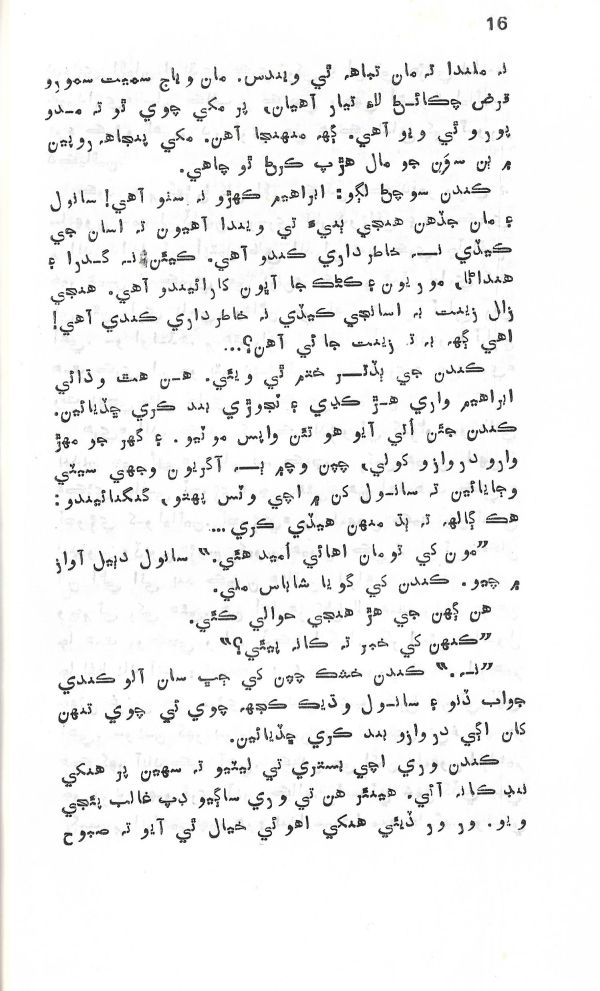 16
نہ ملندا تہ مان تباهہ ٿي ويندس. مان وياج سميت سمورو
قرض چڪائڻ لاءِ تيار آهيان، پر مڪي چوي ٿو تہ مـدو
پورو ٿي ويو آهي. ڳهہ منهنجا آهن. مڪي پنجاهہ روپين
۾ ٻن سؤن جو مال هڙپ ڪرڻ ٿو چاهي.
ڪندن سوچڻ لڳو: ابراهيم ڪهڙو نہ سٺو آهي! سانول
۽ مان جڏهن هنجي ٻنيءَ تي ويندا آهيون تہ اسان جي
ڪيڏي نـہ خاطرداري ڪندو آهي. ڪيئن نہ گـدرا ۽
هنداڻا، موريون ۽ ڪڻڪ جا آٻون کارائيندو آهي. هنجي
زال زينت بہ اسانجي ڪيڏي نہ خاطرداري ڪندي آهي!
اهي ڳهہ بہ تہ زينت جا ئي آهن؟...
ڪندن جي ٻڌتـر ختم ٿي ويئي. هـن هٿ وڌائي
ابراهيم واري هـڙ ڪڍي ۽ تجوڙي بند ڪري ڇڏيائين.
ڪندن جئن اُٿي آيو هو تئن واپس موٽيو. ۽ گهر جو مهڙ
وارو دروازو کولي، چپن وچ ۾ ٻـہ آڱريون وجهي سيٽي
وڄايائين تہ سانـول کن ۾ اچي وٽس پهتو، گنگنائيندو:
هڪ ڳالهہ تہ ٻڌ منهن هيڏي ڪري...
”مون کي تو مان اهائي اُميد هئي.“ سانول دٻيل آواز
۾ چيو. ڪندن کي گويا شاباس ملي.
هن ڳهن جي هڙ هنجي حوالي ڪئي.
”ڪنهن کي خبر تہ ڪانہ پيئي؟“
”نـہ.“ ڪندن خشڪ چپن کي جڀ سان آلو ڪندي
جواب ڏنو ۽ سانـول وڌيڪ ڪجهہ چوي ئي چوي تنهن
کان اڳي دروازو بند ڪري ڇڏيائين.
ڪندن وري اچي بستري تي ليٽيو تہ سهين پر هنکي
ننڊ ڪانہ آئي. هينئر هن تي وري ساڳيو ڊپ غالب پئجي
ويو. ور ور ڏيئي هنکي اهو ئي خيال ٿي آيو تہ صبوح